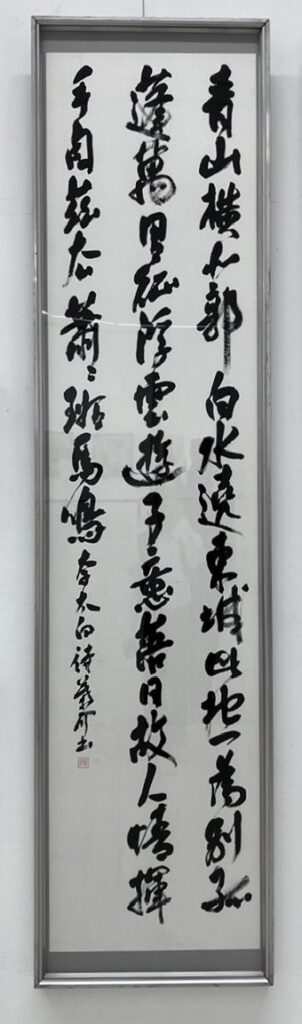 青山横北郭白水遶東城此地一為別孤
蓬萬里征浮雲遊子意落日故人情揮
手自茲去蕭〻班馬鳴李太白詩